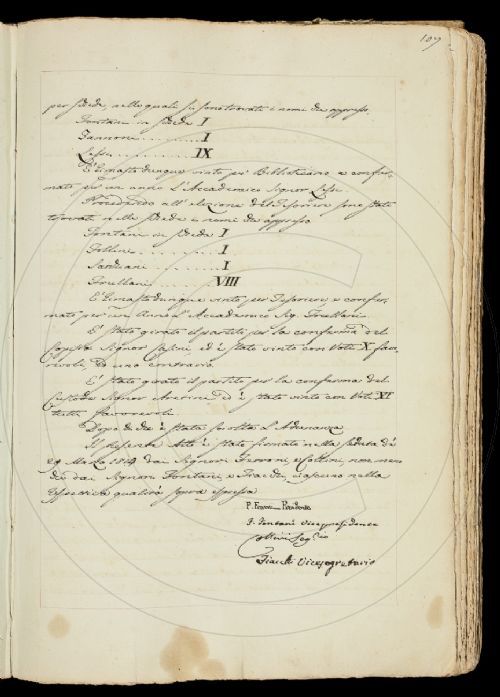 109
per schede, nelle quali si sono trovati i nomi che appresso.
Fontani in schede I
Zannoni . . . . . . . . . . I
Lessi . . . . . . . . . . . IX
E' rimasto dunque vinto per Bibliotecario, e confer-
mato per un anno l'Accademico Signor Lessi.
Procedendo all'elezione del Tesoriere sono stati
trovati nelle schede i nomi che appresso
Fontani in scheda I
Follini . . . . . . . . I
. . . . . . . I
Frullani . . . . . . . VIII
E' rimasto dunque vinto per Tesoriere, e confer-
mato per un Anno l'Accademico Sig. Frullani.
E' stato girato il partito per la conferma del
Copista Signor Casini, ed è stato vinto con Voti X favo-
revoli, ed uno contrario.
E' stato girato il partito per la conferma del
Custode Signor ed è stato vinto con Voti XI
tutti favorevoli.
Dopo di che è stata sciolta l'Adunanza.
Il presente Atto è stato firmato nella seduta de'
29 Marzo 1814 dai Signori Ferroni, e Collini, non meno
che dai Signori Fontani, e ciascuno nella
respettiva qualità sopra espressa
P. Ferroni Presidente
F. Fontani Vicepresidente
Collini Seg.rio
Vicesegretario